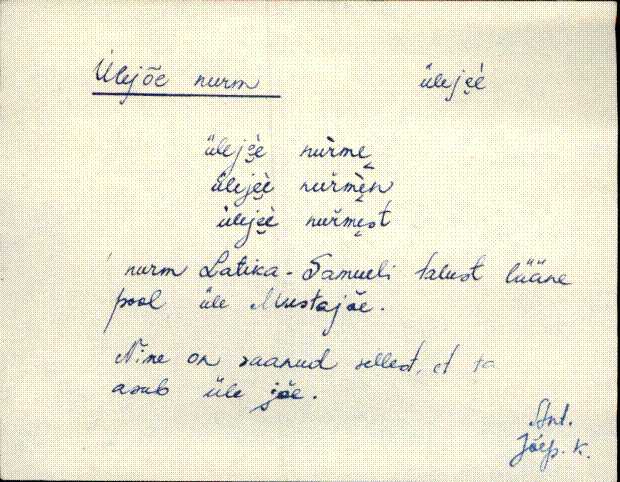 Ülejõe nurm üleje̮è
üleje̮è nùrme̮
üleje̮è nuŕme̮n
üleje̮è nuŕme̮st
nurm Latika-Samueli talust lääne
pool üle Mustajõe.
Nime on saanud sellest, et ta
asub üle jõe.
Ant.
Jõep. k.